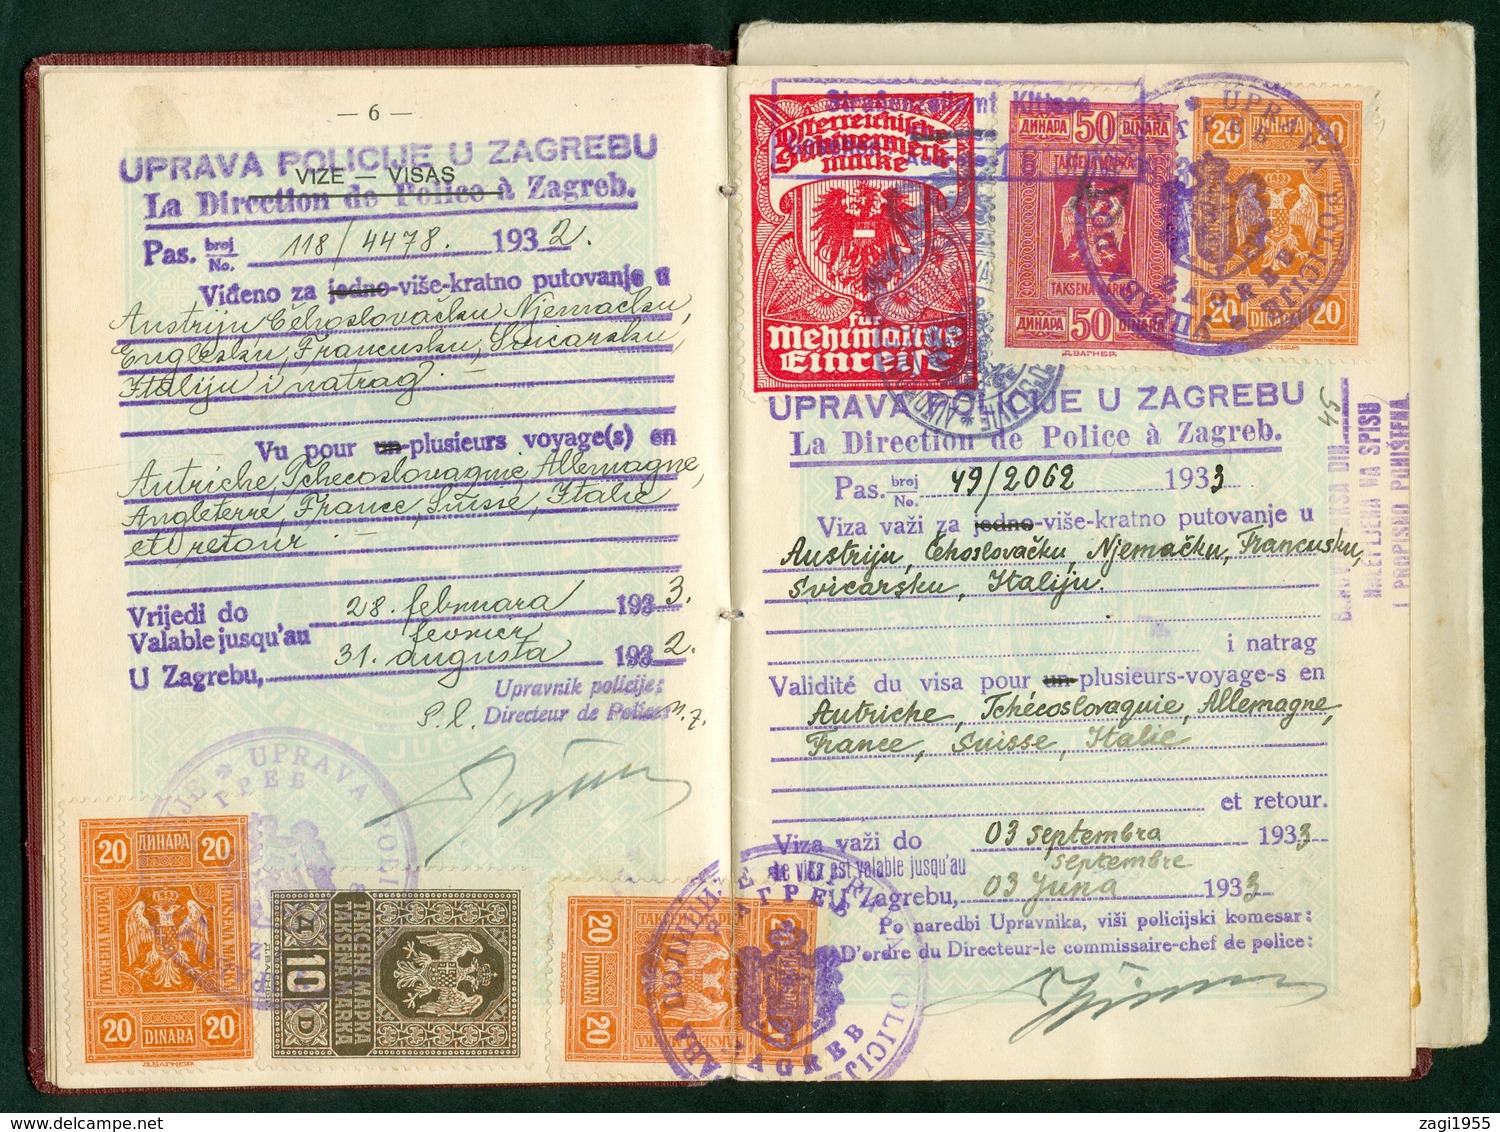 — 6 —
UPRAVA POLICIJE U ZAGREBU
VIZE — VISAS
La Direction de Police à Zagreb.
Pas. broj No. 118/4478. 1932.
Viđeno za jedno-više-kratno putovanje u
Austriju, Čehoslovačku, Njemačku,
Englesku, Francusku, Švicarsku,
Italiju i natrag.
Vu pour un-plusieurs voyage(s) en
Autriche, Tchecoslovaquie, Allemagne,
Angleterre, France, Suisse, Italie
et retour.
Vrijedi do 28. februara 1933.
Valable jusqu'au fevrier
U Zagrebu, 31. augusta 1932.
Upravnik policije:
Directeur de Police:
JUGO
UPRAVA
20 ДИНАРА 20
TAKSENA MARKA
20 DINARA 20
Д.ВАГНЕР.
10 D
ТАКСЕНА МАРКА
TAKSENA MARKA
20 DINARA 20
ZAGREB
Straßenzollamt Kittsee
Österreichische
marke
für
Mehrmalige
Einreise
ДИНАРА 50 DINARA
ТАКСЕНА МАРКА
TAKSENA MARKA
ДИНАРА 50 DINARA
Д.ВАГНЕР.
20 ДИНАРА 20
20 DINARA 20
UPRAVA POLICIJE
ZAGREB
UPRAVA POLICIJE U ZAGREBU
La Direction de Police à Zagreb.
Pas. broj No. 49/2062 1933
Viza važi za jedno-više-kratno putovanje u
Austriju, Čehoslovačku, Njemačku, Francusku,
Švicarsku, Italiju.
i natrag
Validité du visa pour un-plusieurs-voyage-s en
Autriche, Tchécoslovaquie, Allemagne,
France, Suisse, Italie
et retour.
Viza važi do 03 septembra 1933
Le visa est valable jusqu'au septembre
U Zagrebu, 03 juna 1933
Po naredbi Upravnika, viši policijski komesar:
D'ordre du Directeur-le commissaire-chef de police:
54
NALEPLJENA NA SPISU
I PROPISNO PONIŠTENA
zagi1955